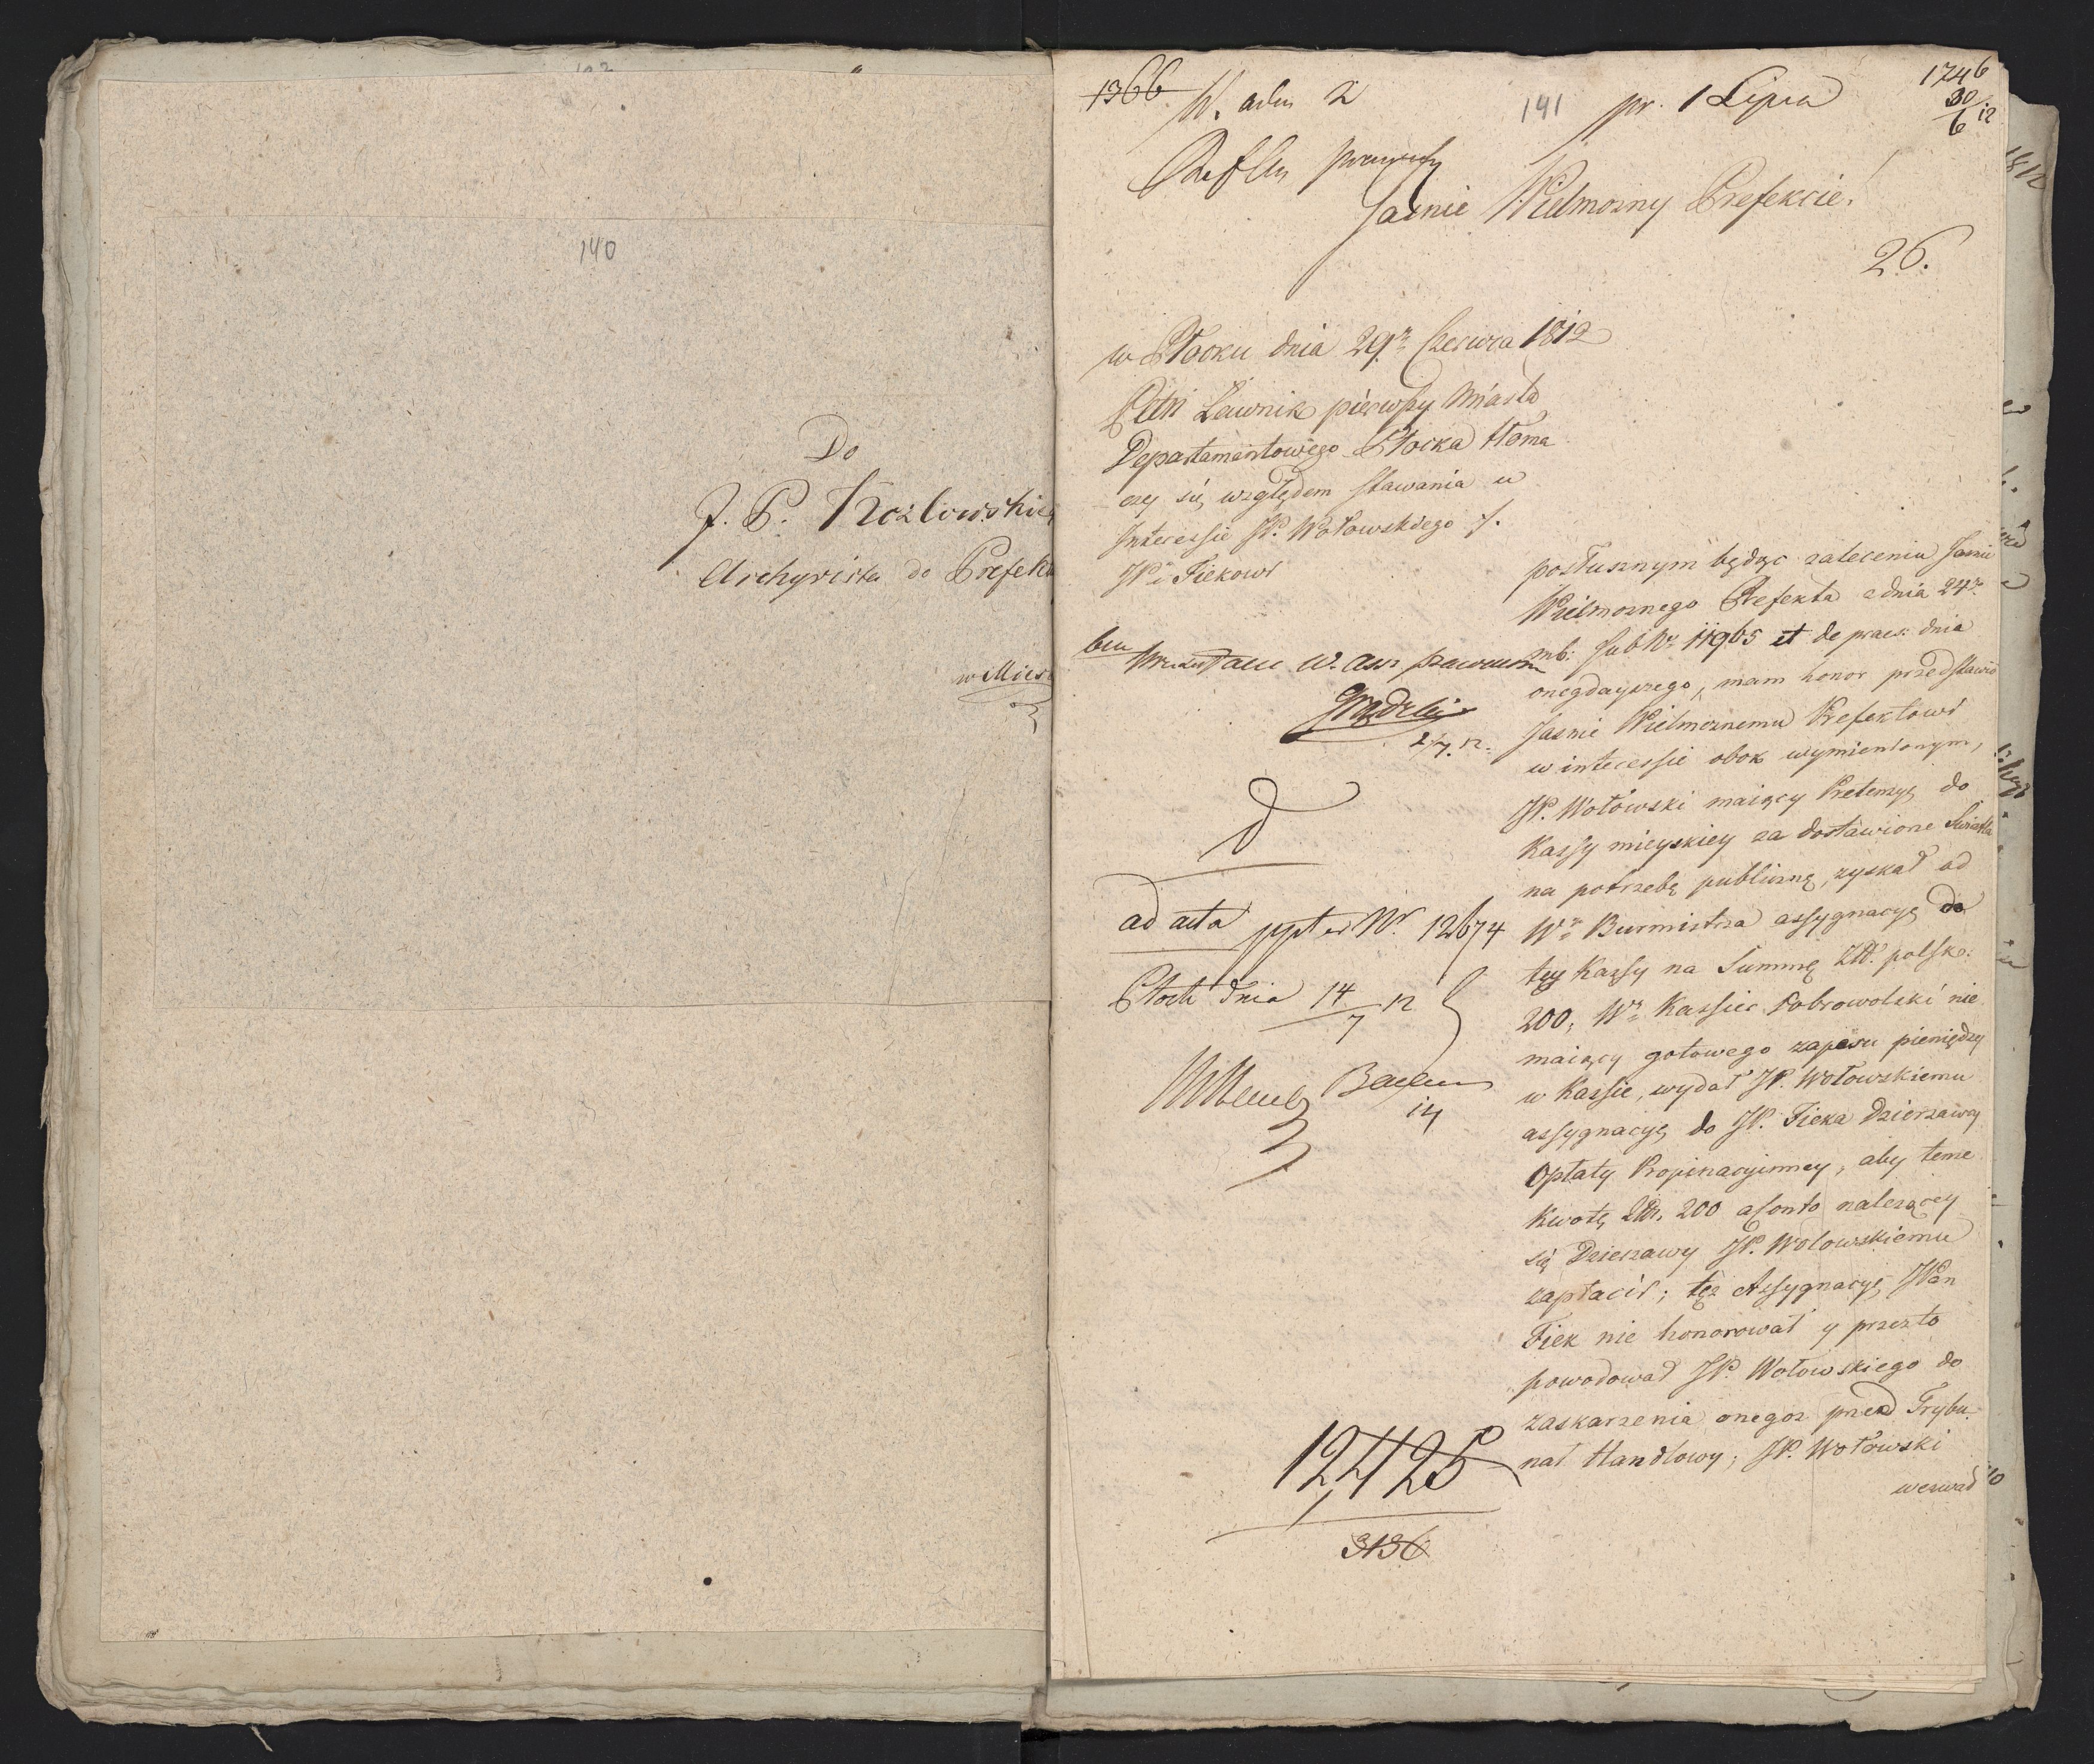 140
Do
J. P. Kozlowskie
Archywista do Prefek
w Miesc
1366
W. adm 2
141
pr. 1 Lipca
1746
30/6 12
Jasnie Wielmozny Prefekcie!
26.
w Płocku dnia 29º Czerwca 1812
Petri Ławnik pierwszy Miasta
Departamentowego Płocka tłoma
czy się względem stawania w
Interessie JP. Wołowskiego ./.
JPi Fiekowi
2/7. 12.
ad acta ppter Nr. 12674
Płock dnia 14/7 12
14
12,425
3136
posłusznym będąc zaleceniu Jasnie
Wielmoznego Prefekta z dnia 24º
mb: sub Nr 11965 et de praes: dnia
onegdayszego, mam honor przedstawić
Jasnie Wielmoznemu Prefektowi
w interessie obok wymienionym,
JP. Wołowski maiący Pretensyę do
Kassy mieyskiey za dostawione Swiatła
na potrzebę publiczną, zyskał od
Wº Burmistrza assygnacyę do
tey Kassy na Summę Złł. polsk:
200, Wº Kassier Dobrowolski nie
maiący gotowego zapasu pieniędzy
w Kassie, wydał JP. Wołowskiemu
assygnacyę do JP. Fieka Dzierzawcy
Opłaty Propinacyinney, aby teme
Kwotę Złł. 200 a Conto nalezącey
się Dzierzawy JP. Wołowskiemu
zapłacił; tęz Assygnacyę JPan
Fiek nie honorował y przezto
powodował JP. Wołowskiego do
zaskarzenia onegoz przed Trybu-
nał Handlowy; JP. Wołowski
wezwał